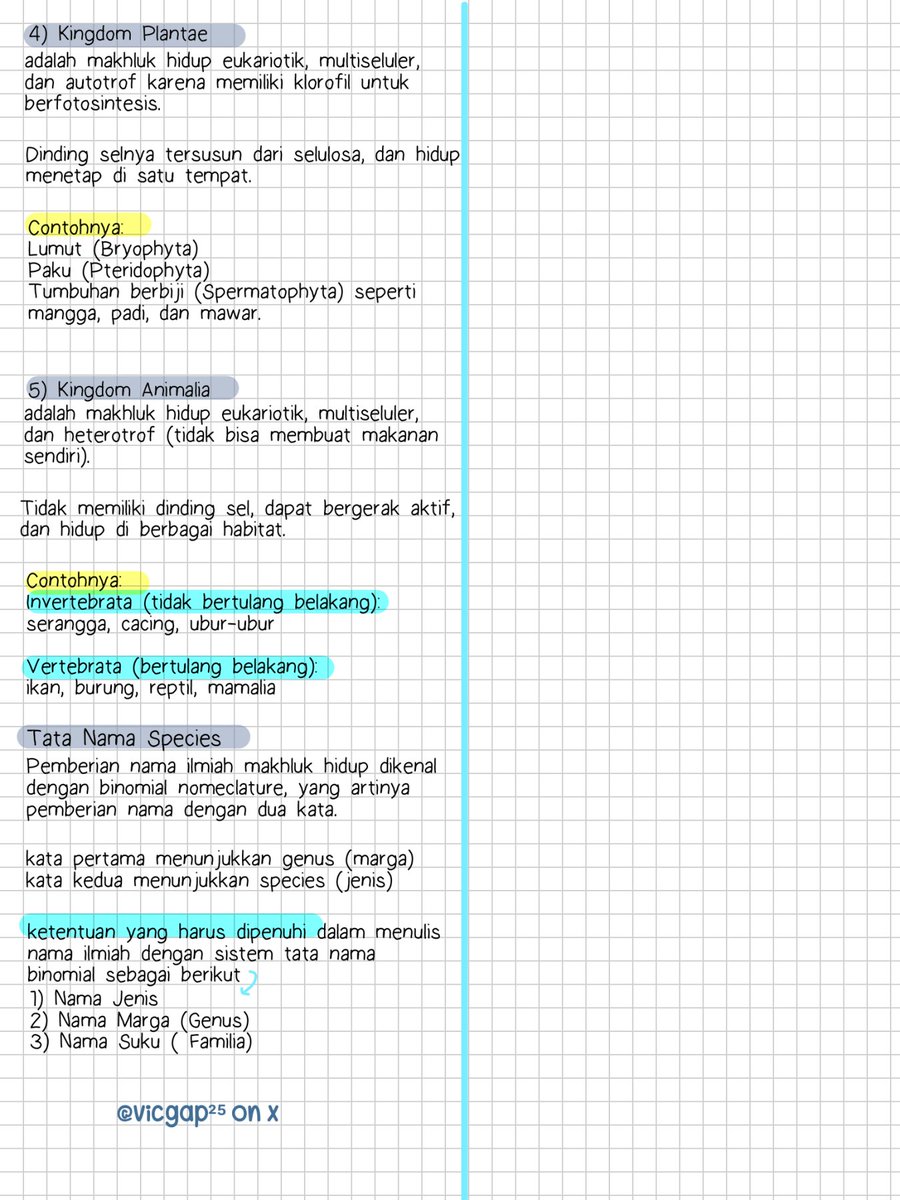 4) Kingdom Plantae
adalah makhluk hidup eukariotik, multiseluler,
dan autotrof karena memiliki klorofil untuk
berfotosintesis.
Dinding selnya tersusun dari selulosa, dan hidup
menetap di satu tempat.
Contohnya:
Lumut (Bryophyta)
Paku (Pteridophyta)
Tumbuhan berbiji (Spermatophyta) seperti
mangga, padi, dan mawar.
5) Kingdom Animalia
adalah makhluk hidup eukariotik, multiseluler,
dan heterotrof (tidak bisa membuat makanan
sendiri).
Tidak memiliki dinding sel, dapat bergerak aktif,
dan hidup di berbagai habitat.
Contohnya:
Invertebrata (tidak bertulang belakang):
serangga, cacing, ubur-ubur
Vertebrata (bertulang belakang):
ikan, burung, reptil, mamalia
Tata Nama Species
Pemberian nama ilmiah makhluk hidup dikenal
dengan binomial nomeclature, yang artinya
pemberian nama dengan dua kata.
kata pertama menunjukkan genus (marga)
kata kedua menunjukkan species (jenis)
ketentuan yang harus dipenuhi dalam menulis
nama ilmiah dengan sistem tata nama
binomial sebagai berikut
1) Nama Jenis
2) Nama Marga (Genus)
3) Nama Suku ( Familia)
@vicgap²⁵ on x